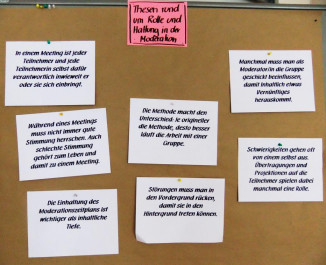 Thesen rund
um Rolle und
Haltung in der
Moderation
In einem Meeting ist jeder
Teilnehmer und jede
Teilnehmerin selbst dafür
verantwortlich inwieweit er
oder sie sich einbringt.
Manchmal muss man als
Moderator/in die Gruppe
geschickt beeinflussen,
damit inhaltlich etwas
Vernünftiges
herauskommt.
Während eines Meetings
muss nicht immer gute
Stimmung herrschen. Auch
schlechte Stimmung
gehört zum Leben und
damit zu einem Meeting.
Die Methode macht den
Unterschied- Je origineller
die Methode, desto besser
läuft die Arbeit mit einer
Gruppe.
Schwierigkeiten gehen oft
von einem selbst aus.
Übertragungen und
Projektionen auf die
Teilnehmer spielen dabei
manchmal eine Rolle.
Die Einhaltung des
Moderationszeitplans ist
wichtiger als inhaltliche
Tiefe.
Störungen muss man in
den Vordergrund rücken,
damit sie in den
Hintergrund treten können.